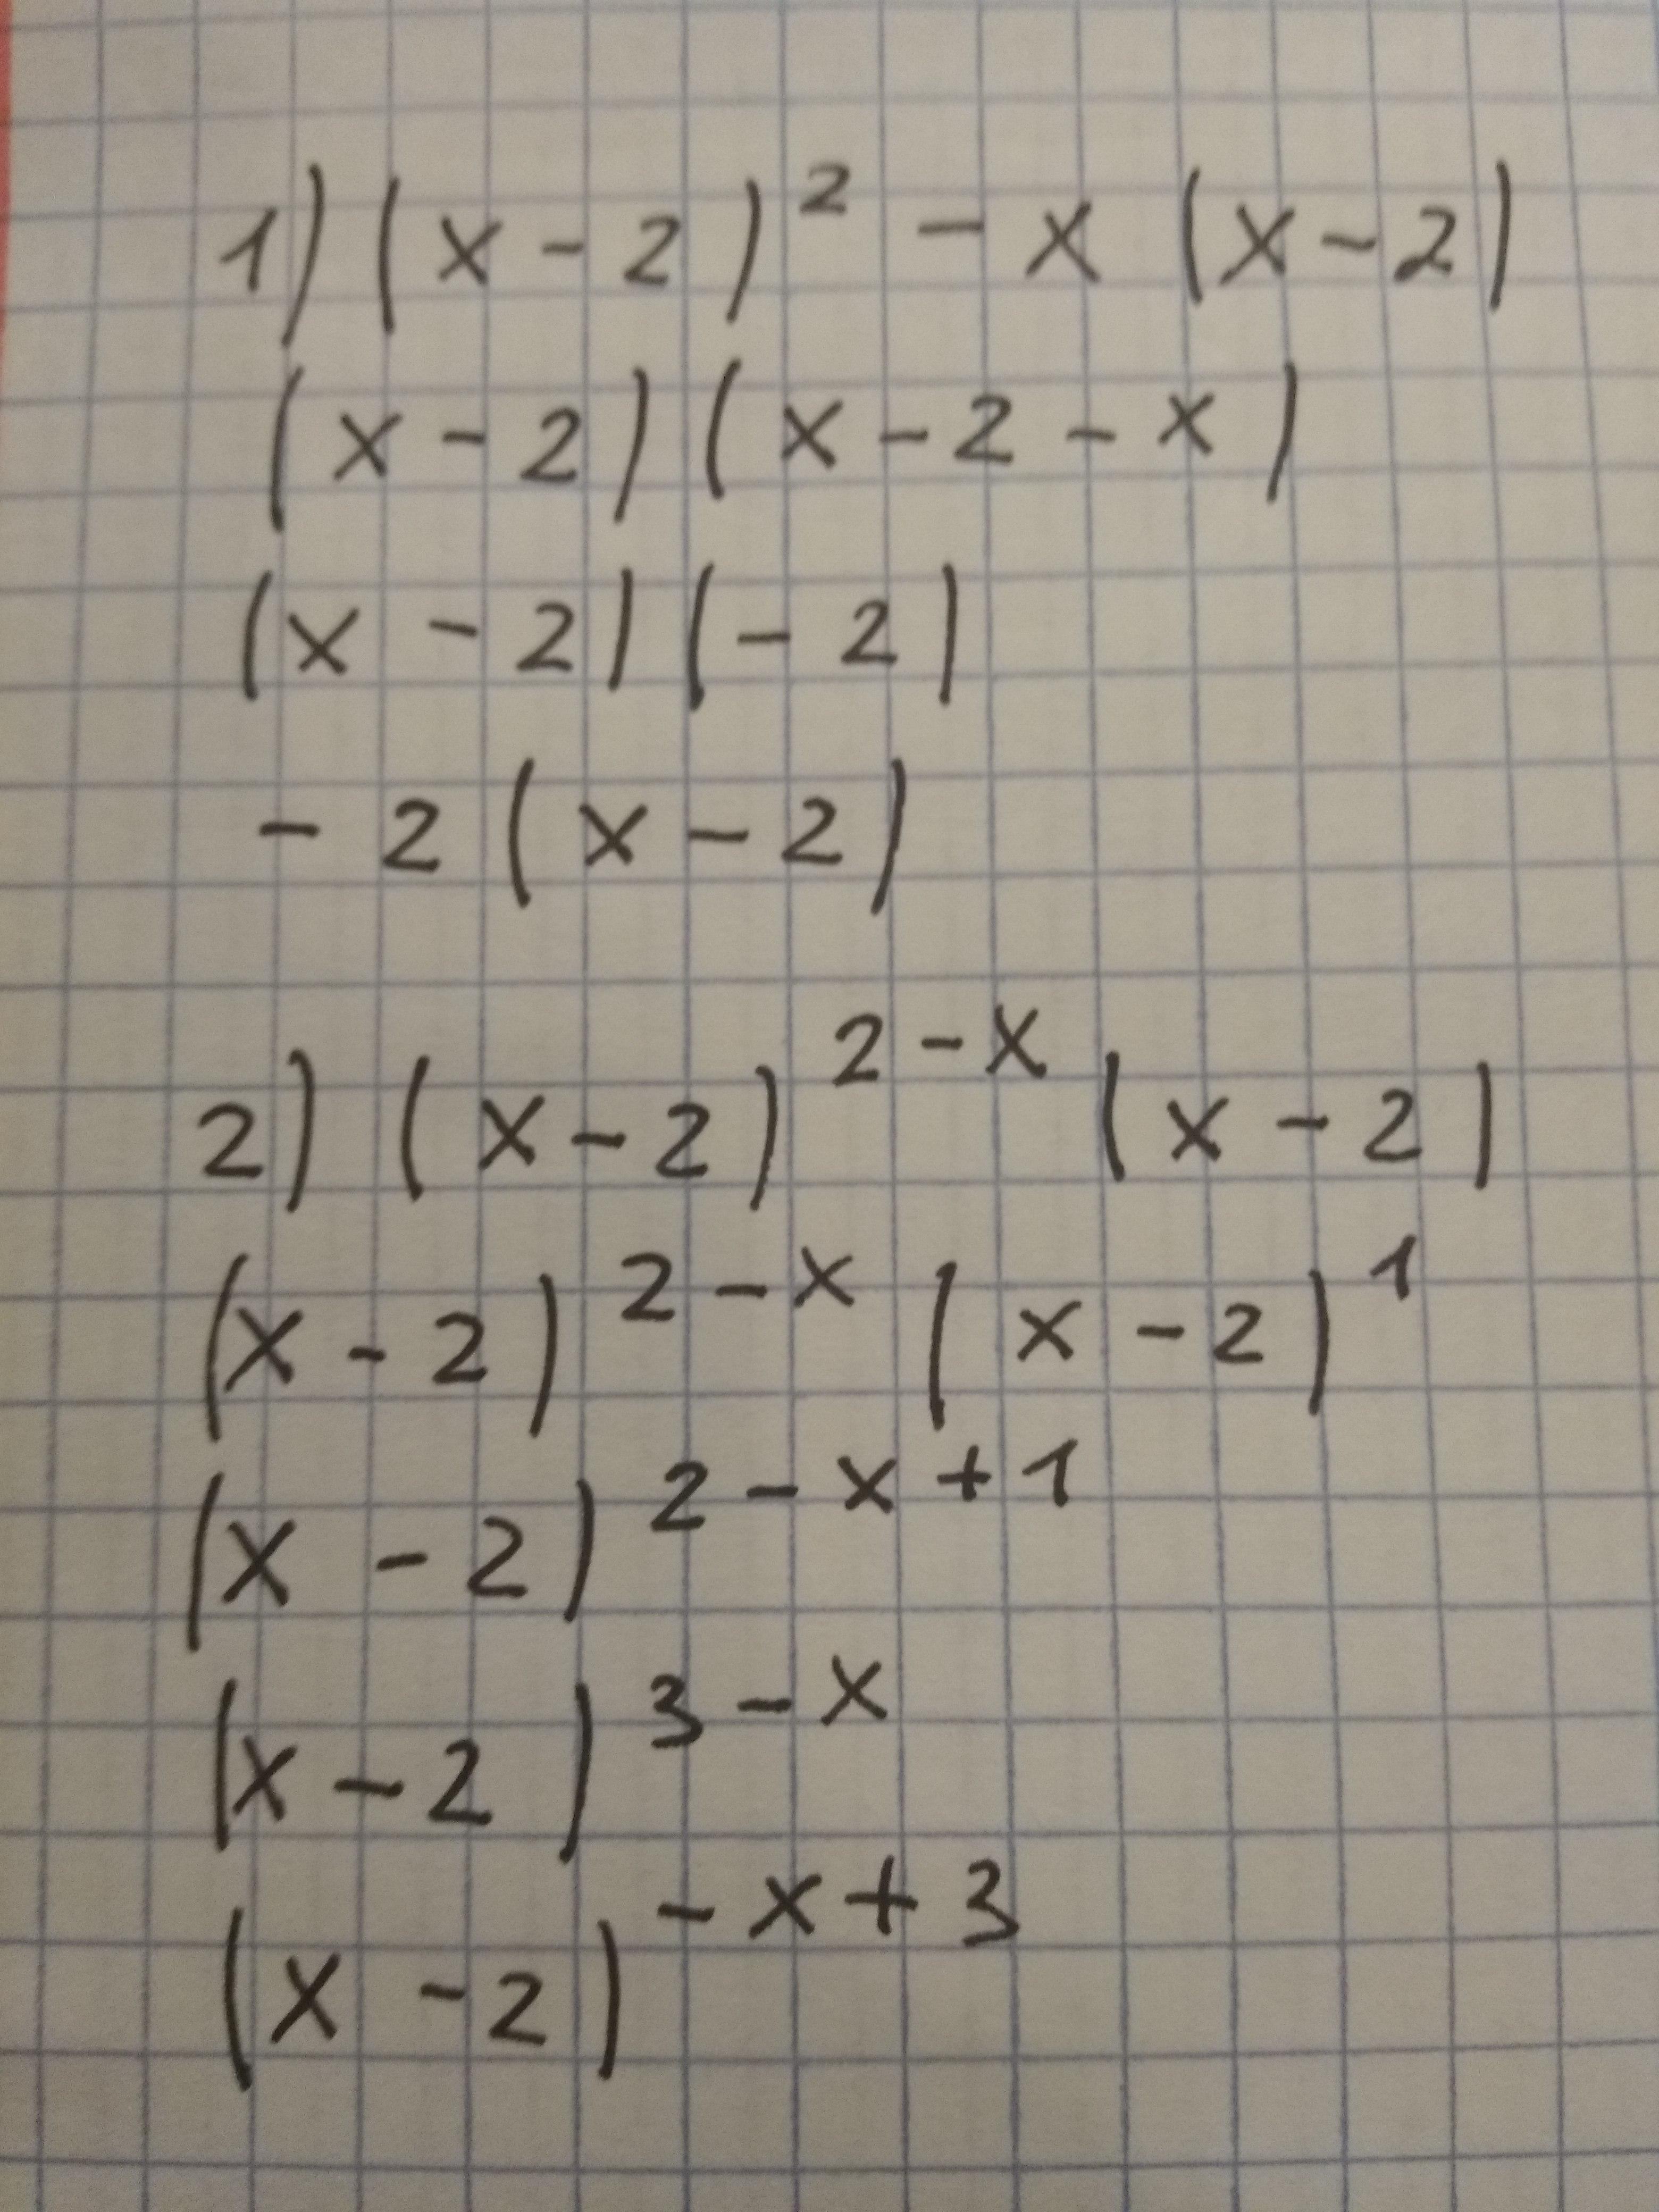 1) (x-2)² - x (x-2)
(x-2)(x-2-x)
(x-2)(-2)
-2(x-2)
2) (x-2)^{2-x} (x-2)
(x-2)^{2-x} (x-2)^1
(x-2)^{2-x+1}
(x-2)^{3-x}
(x-2)^{-x+3}